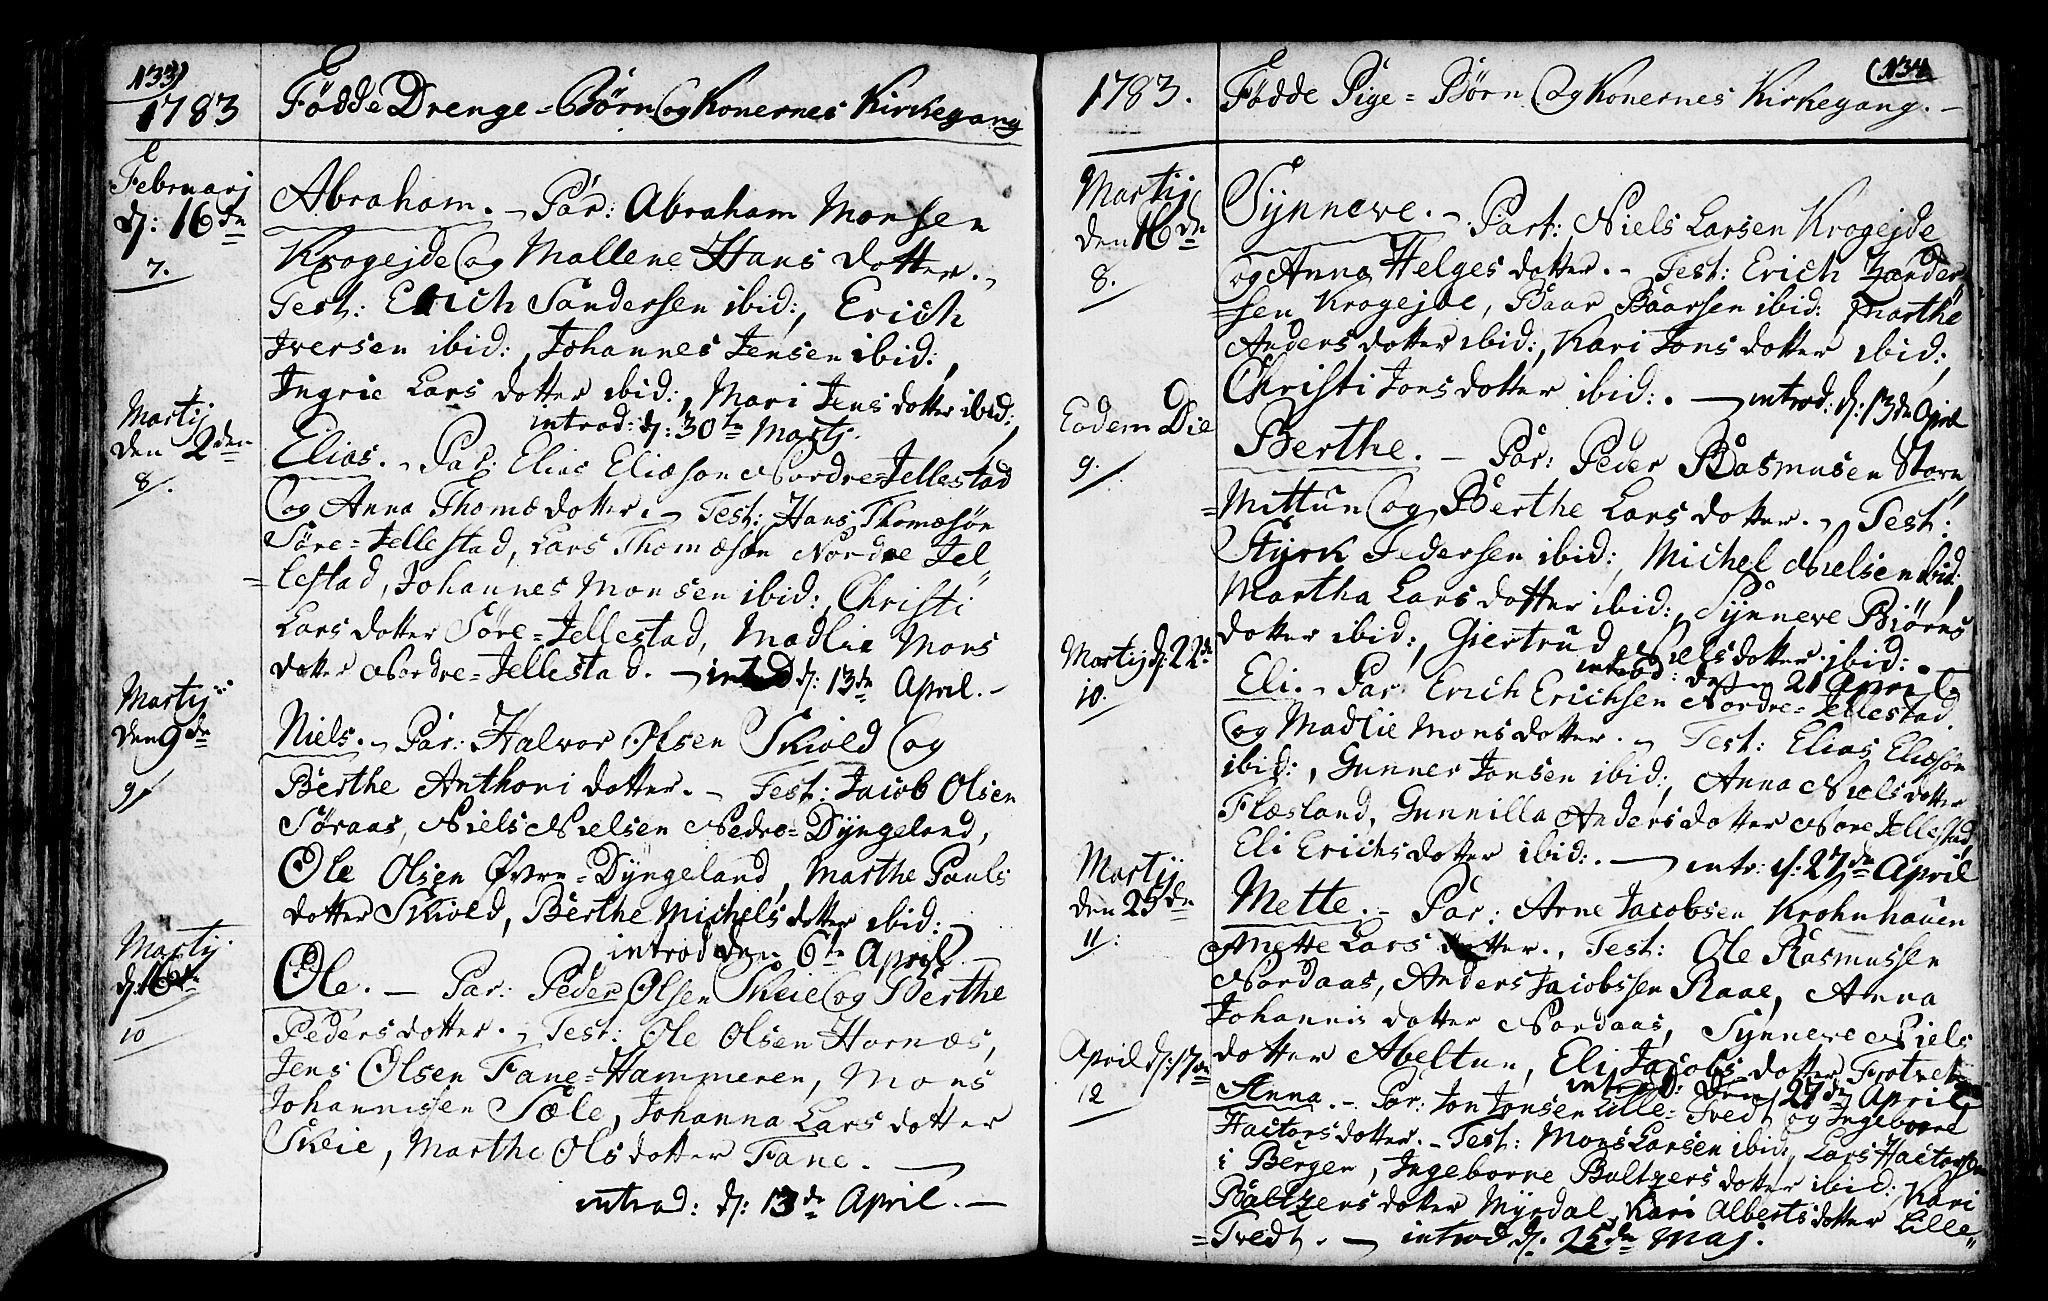 133)
1783 Fødde Drenge-Børn og Konernes Kirkegang
Februarj d: 16de 7. Abraham. - Par: Abraham Monsen
Krogejde og Mallene Hans dotter. -
Test: Erich Sandersen ibid:, Erich
Iversen ibid:, Johannes Jensen ibid:,
Ingrie Lars dotter ibid:, Mari Jens dotter ibid:,
introd: d: 30te Martj.
Martij den 2den 8. Elias. - Par: Elias Eliæson Nordre-Jellestad
og Anna Thomæ dotter. - Test: Hans Thomæsøn
Søre-Jellestad, Lars Thomæsøn Nordre Jel
=lestad, Johannes Monsen ibid:, Christi
Lars dotter Søre-Jellestad, Madlie Mons
dotter Nordre-Jellestad. - d: 13de April. -
Martij den 9de 9. Niels. - Par: Halvor Olsen Skiold og
Berthe Anthoni dotter. - Test: Jacob Olsen
Søraas, Niels Nielsen Nedre-Dyngeland,
Ole Olsen Øvre-Dyngeland, Marthe Pauls
dotter Skiold, Berthe Michels dotter ibid:
introd den 6te April. -
Martij d: 16de 10 Ole. - Par: Peder Olsen Skeie og Berthe
Peders dotter. - Test: Ole Olsen Hornæs,
Jens Olsen Fane-Hammeren, Mons
Johannissen Sæle, Johanna Lars dotter
Skeie, Marthe Ols dotter Fane. -
introd: d: 13de April. -
(134
1783. Fødde Pige=Børn og Konernes Kirkegang. -
Martij den 16de 8. Synneve. - Part: Niels Larsen Krogejde
og Anna Helges dotter. - Test: Erich Zander
=sen Krogejde, Baar Baarsen ibid: Marthe
Anders dotter ibid:, Kari Jons dotter ibid:,
Christi Jons dotter ibid:. - introd: d: 13de April
Eodem Die 9. Berthe. - Par: Peder Rasmusen Store
=Mittun og Berthe Lars dotter. - Test:
Styrk Pedersen ibid:, Michel Nielsen ibid:
Martha Lars dotter ibid:, Synneve Biørns
dotter ibid:, Giertrud Niels dotter ibid:.
introd: den 21 April.
Martij d: 22de 10. Eli. - Par: Erich Erichsen Nordre-Jellestad
og Madlie Mons dotter. - Test: Elias Eliæson
ibid:, Gunner Jonsen ibid:, Anna Niels dotter
Flæsland, Gunnilla Anders dotter Nore Jellestad,
Eli Erichs dotter ibid:. - intr: d: 27de April
Martij den 25de 11: Mette. - Par: Arne Jacobsen Krohnhauen
Mette Lars dotter., Test: Ole Rasmussen
Nordaas, Anders Jacobssen Raae, Anna
Johannis dotter Nordaas, Synneve Niels
dotter Abeltun, Eli Jacobs dotter
introd: den 27de April
April d: 17de 12 Anna. - Par: Jon Jonsen Lille-Tvedt og Ingeborre
Hactors dotter. - Test: Mons Larsen ibid:, Lars Hactorsen
i Bergen, Ingeborre Baltzers dotter ibid:, Kari
Baltzers dotter Myrdal, Kari Alberts dotter Lille
=Tvedt. - introd d. 25de Maj.